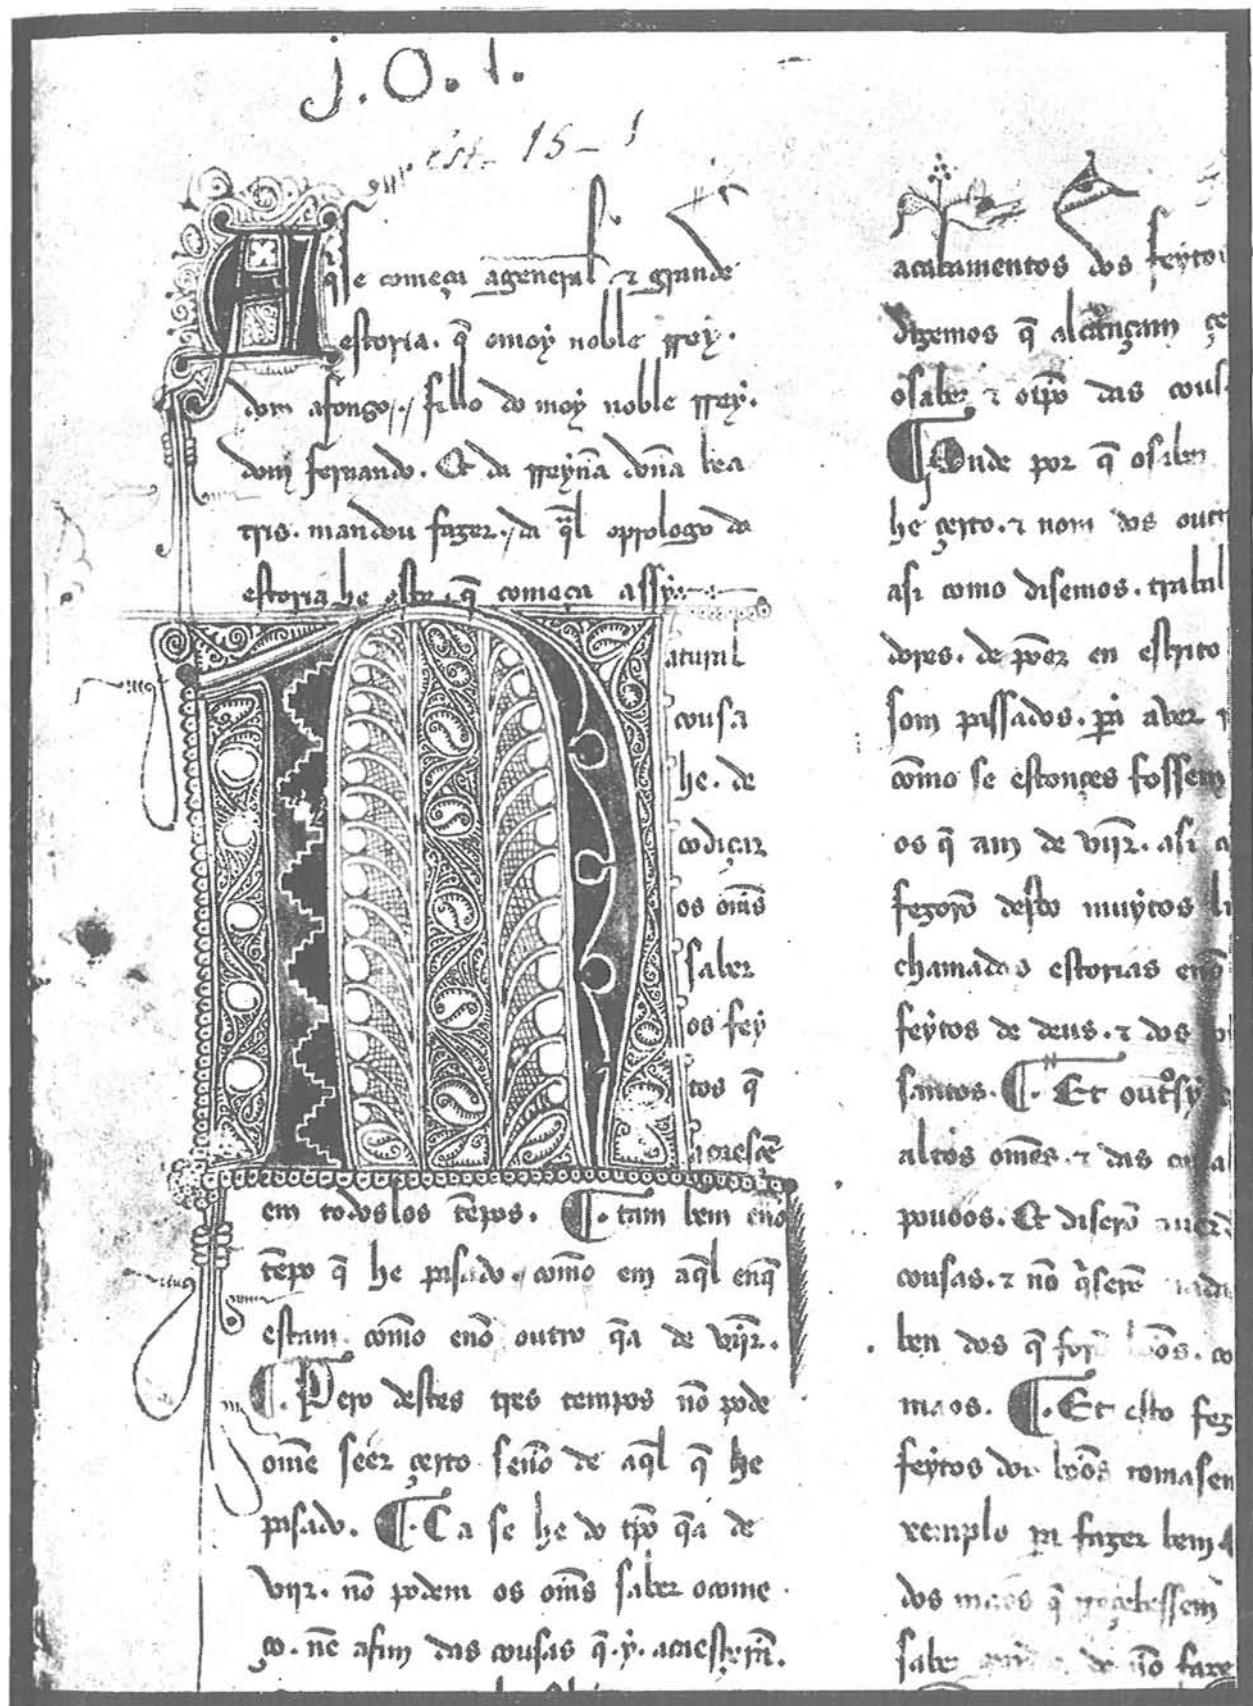 j. O. 1.
est. 15 - 1
Aqi se começa a general & grande
estoria. q̄ o moy noble rrey.
dom afonso. fillo do moy noble rrey.
dom fernando. Et da rreyña doña bea
tris. mandou fazer. da q̄l o prologo da
estoria he este. q̄ começa assy.
Natural
cousa
he. de
cobiçar
os om̄s
saber
os fey
tos q̄
acaesçē
em todoslos tēpos. ¶. tam bem enno
tēpo q̄ he pasado. com̄o em aq̄l enq̄
estam. com̄o enō outro q̄a de vijr̄.
¶. Pero destes tres tempos nō pode
om̄e seer çerto senō de aq̄l q̄ he
pasado. ¶. Ca se he do tp̄o q̄a de
vijr. nō podem os om̄s saber o come
ço. nē a fim das cousas q̄. y. acaesçerā.
acatamentos dos feytos
dizemos q̄ alcançam
o saber & o tp̄o das cous
¶ Onde por q̄ o saber
he çerto. & nom dos out
asi como disemos. trabal
dores. de pōer en escrito
som passados. pa aver
com̄o se estonçes fossem
os q̄ am de vijr̄. asi
fezerō desto muytos li
chamados estorias enō
feytos de deus. & dos
santos. ¶. Et outrosy
altos om̄es. & das
pouoos. Et diserō
cousas. & nō q̄serē
ben dos q̄ forō bōos. co
maos. ¶. Et esto fez
feytos dos bōos tomasen
xemplo pa fazer bem
dos maos q̄ rreçebessem
saber de nō faze